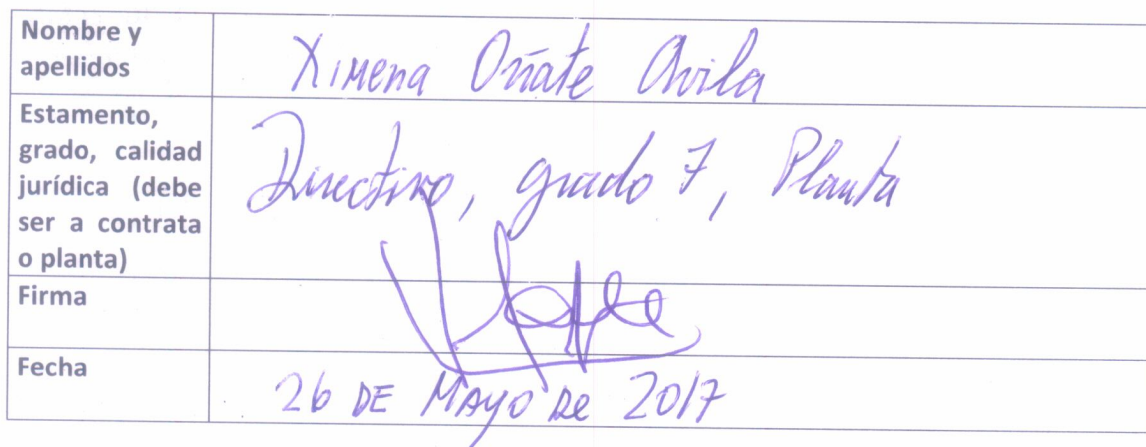 Nombre y
apellidos
Ximena Oñate Avila
Estamento,
grado, calidad
jurídica (debe
ser a contrata
o planta)
Directivo, grado 7, Planta
Firma
Fecha
26 DE MAYO De 2017